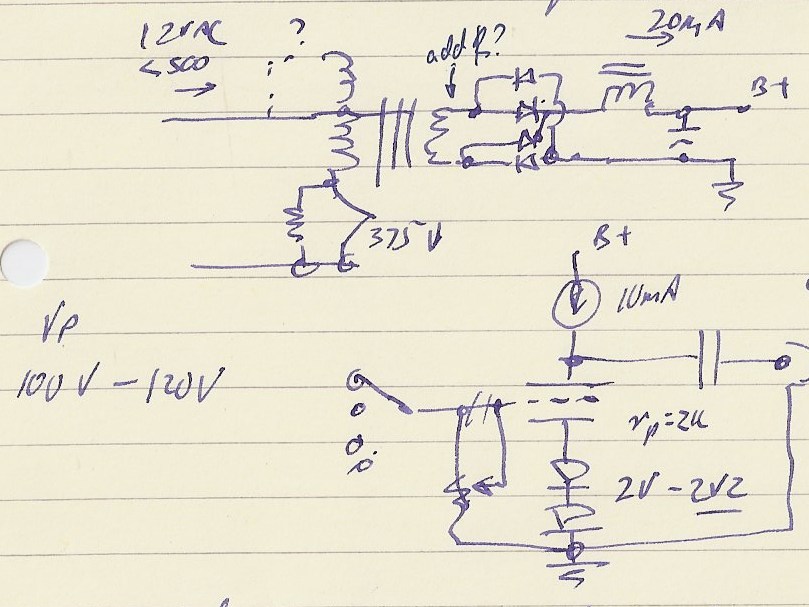 12VAC
?
<500
add R?
20mA
B+
375V
B+
10mA
VP
100V - 120V
rp=2K
2V - 2V2